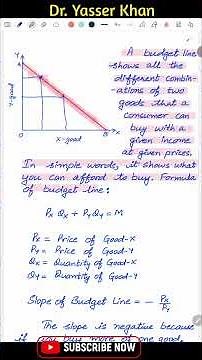 Dr. Yasser Khan
Y
Y-good
X-good
X
A budget line
shows all the
different combin-
-ations of two
goods that a
consumer can
buy with a
given income
at given prices.
In simple words, it shows what
you can afford to buy. Formula
of budget line:
PxQx + PyQy = M
Px = Price of Good-X
Py = Price of Good-Y
Qx = Quantity of Good-X
Qy = Quantity of Good-Y
Slope of Budget Line = - Px/Py
The slope is negative because
buy more of one good,
SUBSCRIBE NOW